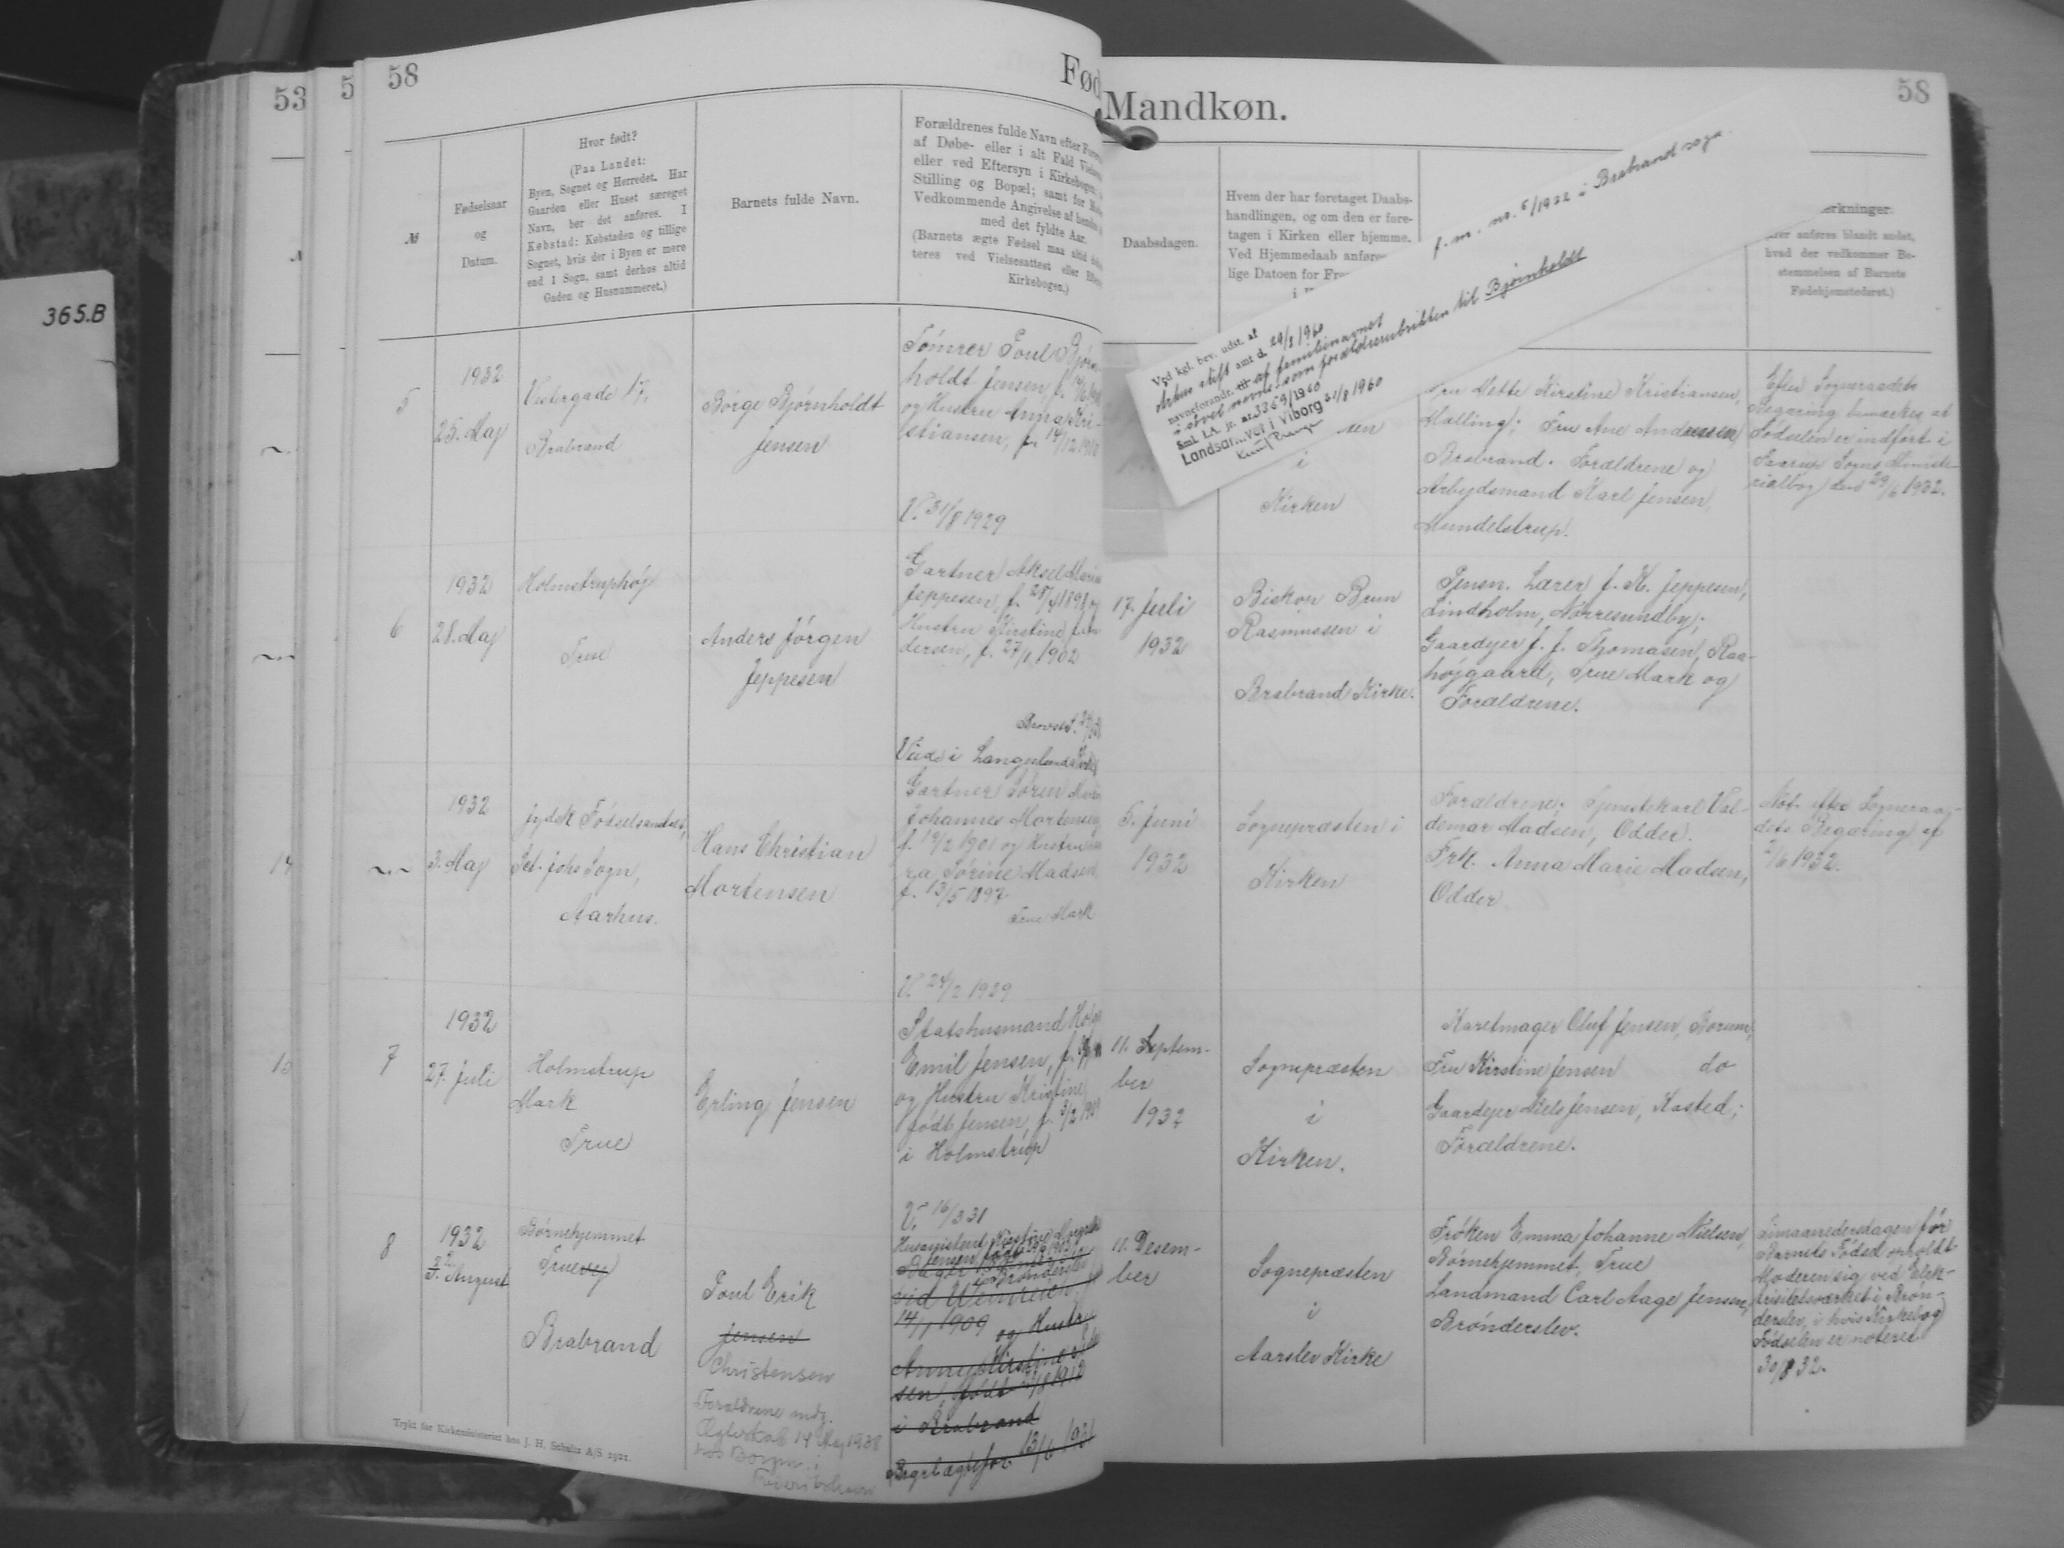 365.B
53
5
58
Fød
Mandkøn.
58
№
Fødselsaar
og
Datum.
Hvor født?
(Paa Landet:
Byen, Sognet og Herredet. Har
Gaarden eller Huset særeget
Navn, bør det anføres. I
Købstad: Købstaden og tillige
Sognet, hvis der i Byen er mere
end 1 Sogn, samt derhos altid
Gaden og Husnummeret.)
Barnets fulde Navn.
Forældrenes fulde Navn efter
af Døbe- eller i alt Fald
eller ved Eftersyn i Kirkebogen;
Stilling og Bopæl; samt for
Vedkommende Angivelse af hendes
med det fyldte Aar.
(Barnets ægte Fødsel maa altid
teres ved Vielsesattest eller
Kirkebogen.)
Daabsdagen.
Hvem der har foretaget Daabs-
handlingen, og om den er fore-
tagen i Kirken eller hjemme.
Ved Hjemmedaab anføres
lige Datoen for
i
rkninger.
anføres blandt andet,
hvad der vedkommer Be-
stemmelsen af Barnets
Fødehjemsteder.)
f. m. nr. 5/1932 i Brabrand sogn.
Ved kgl. bev. udst. af
stift amt d. 29/2 1960
navneforandr. af familienavnet
i såvel navne- som forældrerubrikken til Bjørnholdt
Sml. LA. jr. nr. 3369/1960
Landsarkivet i Viborg 31/8 1960
5
1932
25. Maj
Vestergade 17,
Brabrand
Børge Bjørnholdt
Jensen
Tømrer Poul Bjørn-
holdt Jensen, f.
og Hustru Anna Kri-
stiansen, f. 14/12 1910
V. 31/8 1929
i
Kirken
Fru Mette Kirstine Kristiansen,
Malling; Fru Ane Andersen
Brabrand. Forældrene og
Arbejdsmand Karl Jensen,
Mundelstrup.
Efter Sogneraadets
Begæring bemærkes at
Fødselen er indført i
Faarup Sogns Ministe-
rialbog den 29/6 1932.
6
1932
28. Maj
Holmstruphøj
True
Anders Jørgen
Jeppesen
Gartner Aksel Marin
Jeppesen, f. 28/4 1898 og
Hustru Kirstine f. An-
dersen, f. 27/1 1902
17. Juli
1932
Biskop Brun
Rasmussen i
Brabrand Kirke.
Pensn. Lærer J. K. Jeppesen,
Lindholm, Nørresundby;
Gaardejer J. J. Thomasen, Raa-
højgaard, True Mark og
Forældrene.
14
1932
3. Maj
Jydsk Fødselsanstalt,
Sct. Johs Sogn,
Aarhus.
Hans Christian
Mortensen
Viede i Langelunds Kirke
Gartner Søren Marin
Johannes Mortensen
f. 19/2 1901 og Hustru
ra Sørine Madsen
f. 13/5 1897
True Mark
5. Juni
1932
Sognepræsten i
Kirken
Forældrene; Tjenestekarl Val-
demar Madsen, Odder.
Frk. Anna Marie Madsen,
Odder
Not. efter Sogneraa-
dets Begæring af
2/6 1932.
15
7
1932
27. Juli
Holmstrup
Mark
True
Erling Jensen
V. 24/2 1929
Statshusmand Holger
Emil Jensen, f.
og Hustru Kristine
født Jensen, f. 3/2 1909
i Holmstrup
11. Septem-
ber
1932
Sognepræsten
i
Kirken.
Karetmager Oluf Jensen, Borum,
Fru Kirstine Jensen do
Gaardejer Niels Jensen, Kasted;
Forældrene.
8
1932
22. August
Børnehjemmet
Truevej
Brabrand
Poul Erik
Jensen
Christensen
Forældrene indg.
Ægteskab 14 Maj 1938
V. 16/3 31
14/1 1909 og Hustru
sen, født 21/8 1912
i Brabrand
11. Desem-
ber
Sognepræsten
i
Aarslev Kirke
Frøken Emma Johanne Nielsen,
Børnehjemmet, True
Landmand Carl Aage Jensen,
Brønderslev.
Timaanedersdagen før
Barnets Fødsel opholdt
Moderen sig ved Elek-
tricitetsværket i Brøn-
derslev, i hvis Kirkebog
Fødselen er noteret
30/8 32.
Trykt for Kirkeministeriet hos J. H. Schultz A/S 1921.